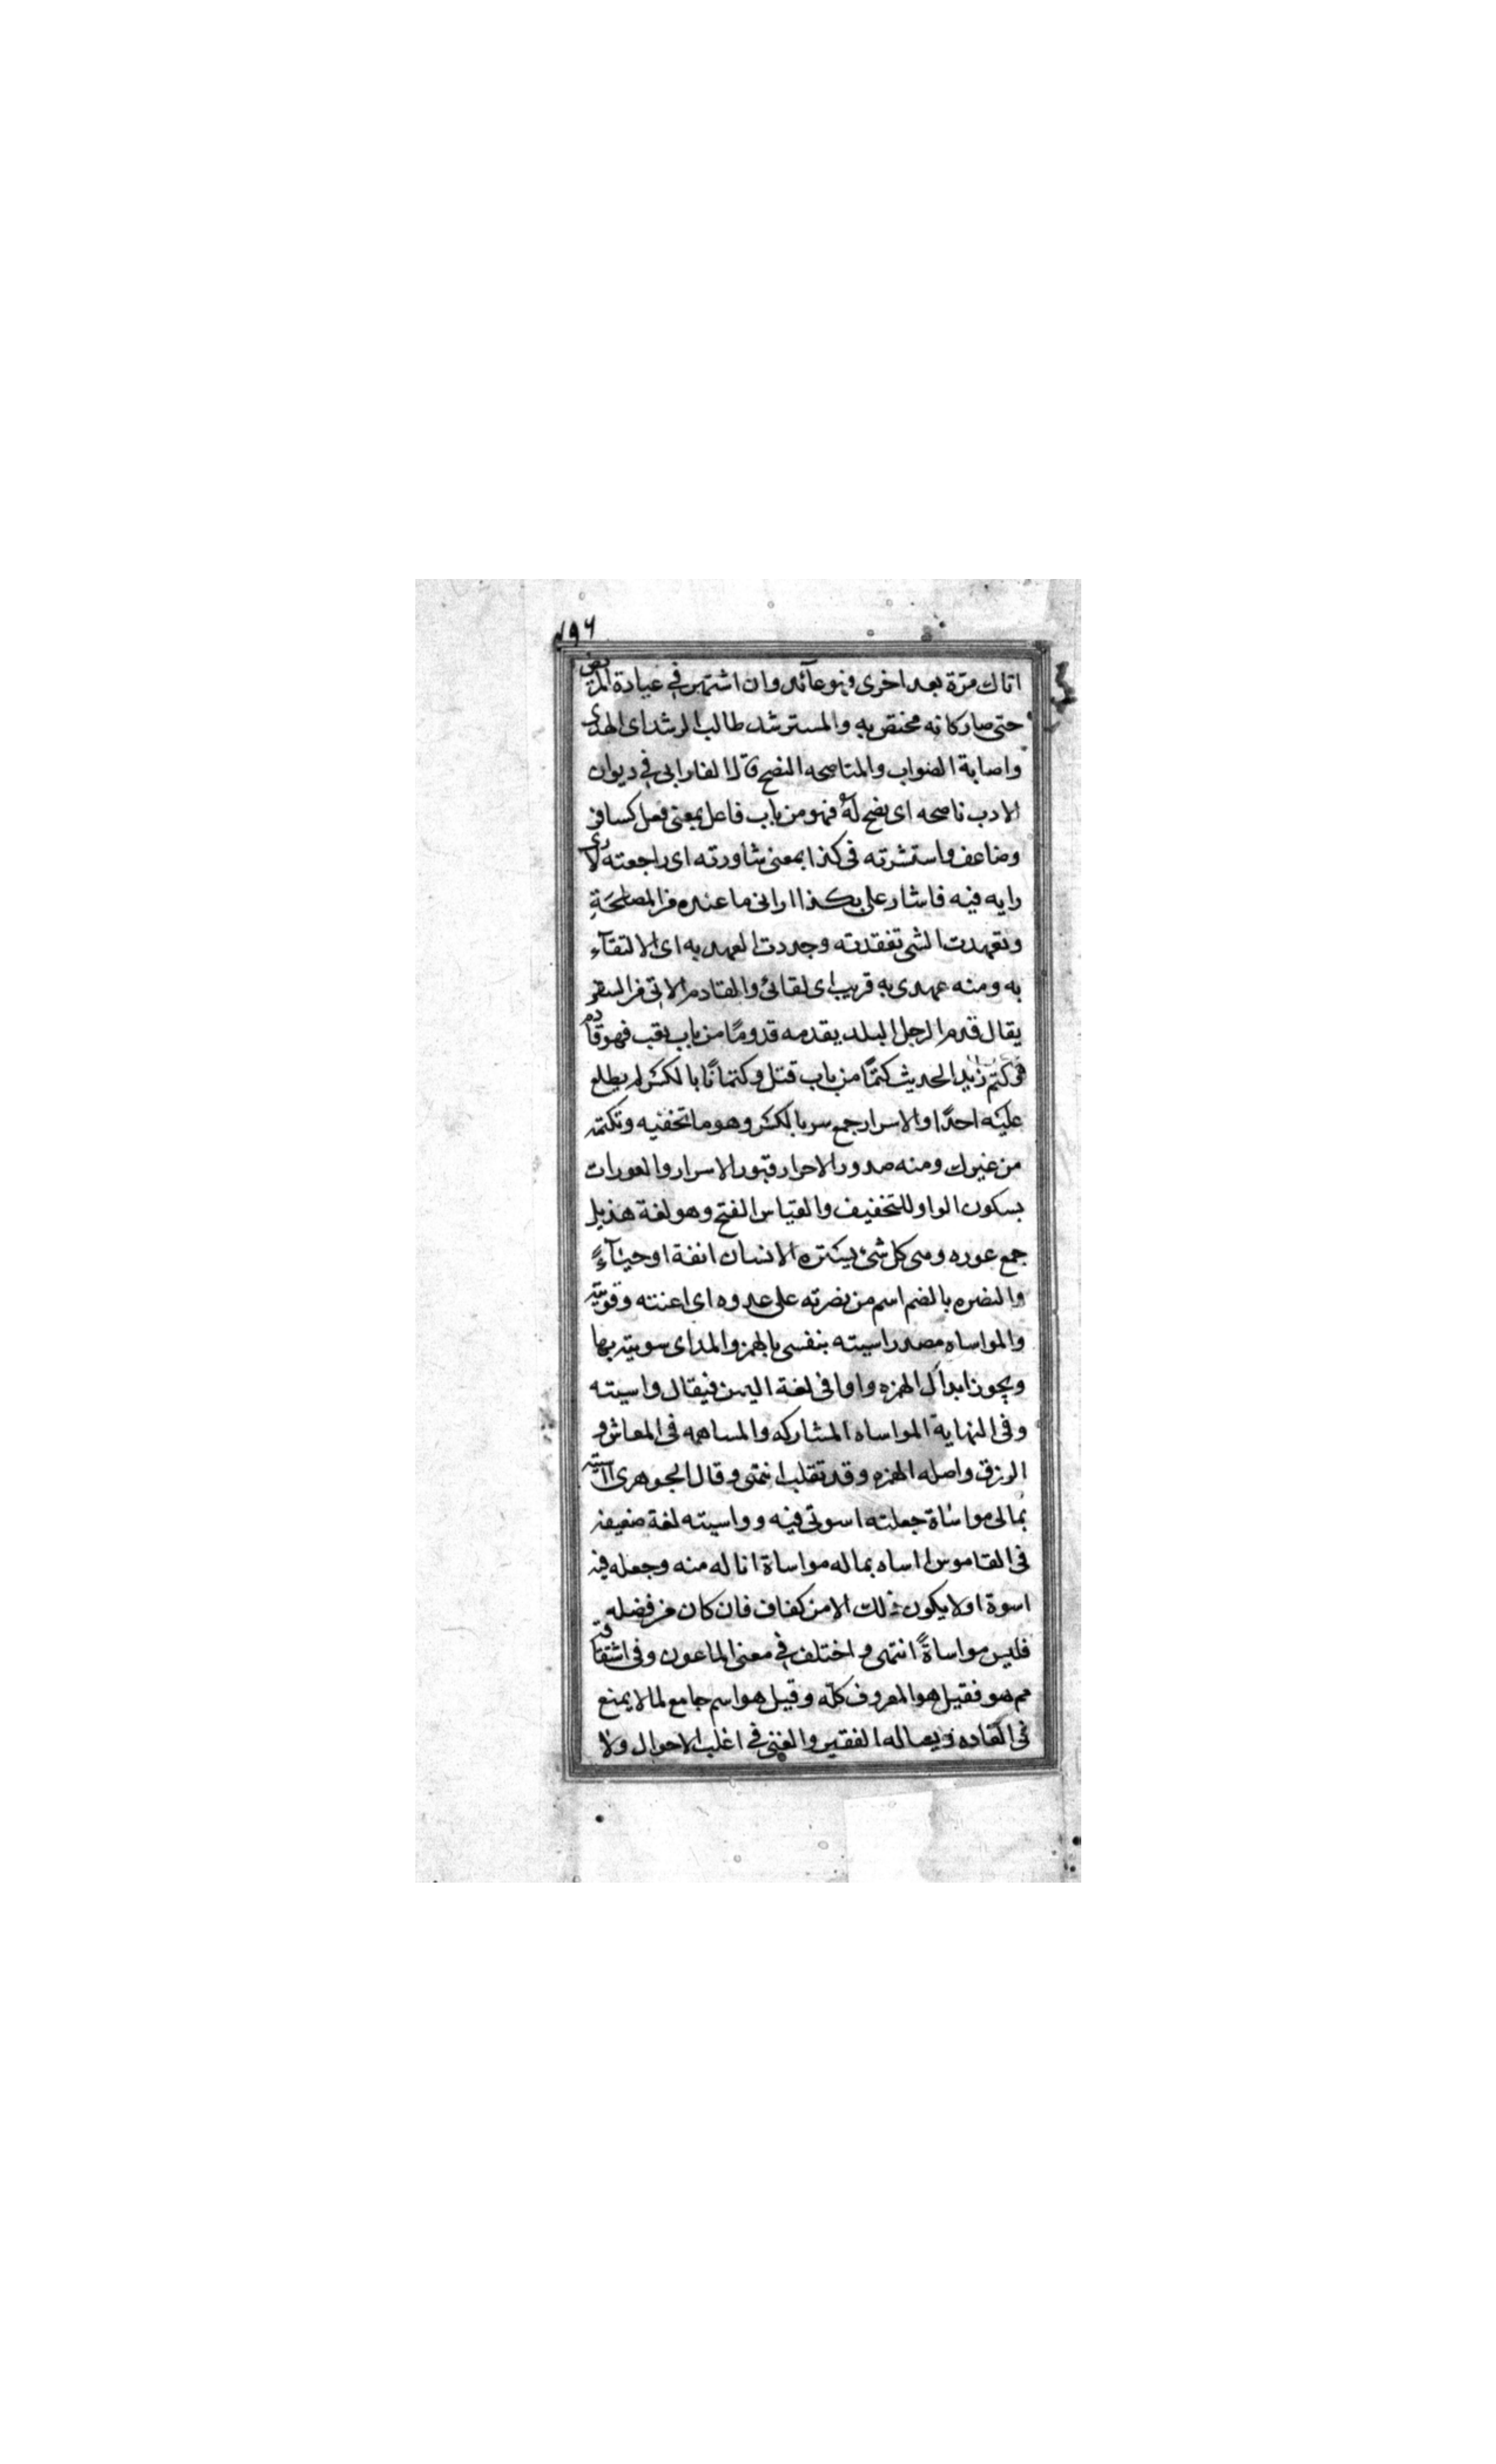 ١٩٦
اتاك مرّة بعد اخرى فهو عآئد وان اشتهر في عيادة المريض
حتى صار كانه مختص به والمسترشد طالب الرشد اى الهدى
واصابة الصواب والمناصحه النصح قال الفارابى في ديوان
الادب ناصحه اى نصح له فهو من باب فاعل بمعنى فعل كسافر
وضاعف واستشرته فى كذا بمعنى شاورته اى راجعته لارى
رايه فيه فاشار على بكذا ارانى ما عنده من المصلحَةِ
وتعهدت الشى تفقدته وجددت العهد به اى الالتقآء
به ومنه عهدى به قريب اى لقائى والقادم الاتى من السفر
يقال قدم الرجل البلد يقدمه قدومًا من باب تعب فهو قادم
وكتم زيد الحديث كتمًا من باب قتل وكتمانًا بالكسر لم يطلع
عليه احدًا والاسرار جمع سر بالكسر وهو ما تخفيه وتكتمه
من غيرك ومنه صدور الاحرار قبور الاسرار والعورات
بسكون الواو للتخفيف والقياس الفتح وهو لغة هذيل
جمع عوره وهى كل شئ يستره الانسان انفة او حيآءً
والنصره بالضم اسم من نصرته على عدوه اى اعنته وقويته
والمواساه مصدر اسيته بنفسى بالهمز والمد اى سويته بها
ويجوز ابدال الهمزه واوا فى لغة اليمن فيقال واسيته
وفى النهاية المواساه المشاركه والمساهمه فى المعاش و
الرزق واصله الهمزه وقد تقلب انتهى وقال الجوهرى اسيته
بمالى مواساة جعلته اسوتى فيه وواسيته لغة ضعيفه
فى القاموس اساه بماله مواساة اناله منه وجعله فيه
اسوة اولا يكون ذلك الا من كفاف فان كان من فضله
فليس مواساةً انتهى و اختلف في معنى الماعون وفى اشتقاقه
مم هو فقيل هو المعروف كلّه وقيل هو اسم جامع لما لا يمنع
فى العاده ويساله الفقير والغنى في اغلب الاحوال ولا